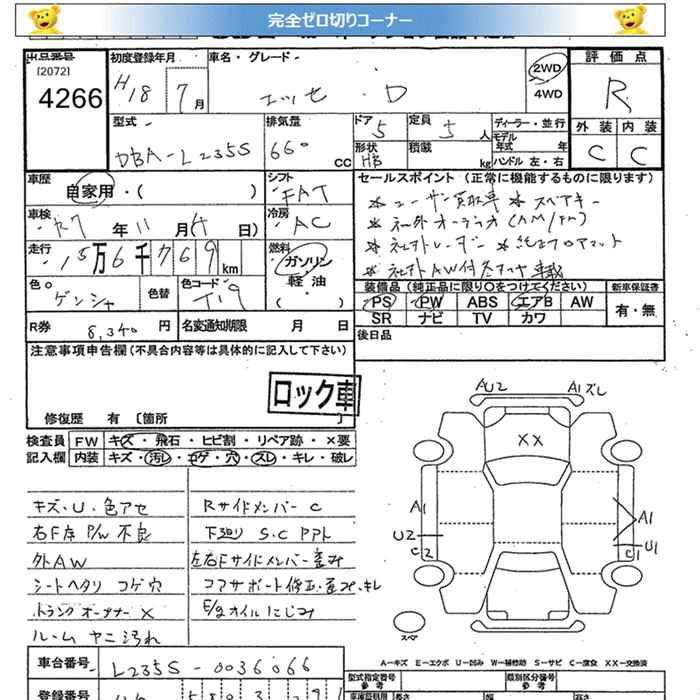 完全ゼロ切りコーナー
出品番号 初度登録年月 車名・グレード 評価点
[2072]
4266 H18 7月 エッセ・D 2WD 4WD R
型式 排気量 ドア 定員 ディーラー・並行 外装 内装
DBA-L235S 660 CC 5 5人 モデル年式 年 C C
形状 HB 積載 kg ハンドル 左・右
車歴 自家用・( ) シフト FAT セールスポイント (正常に機能するものに限ります)
車検 R7年11月4日) 冷房 AC *ユーザー買取車 *スペアキー
*社外オーディオ(AM/FM)
走行 15万6千769km 燃料 ガソリン 軽油 ( ) *社外レーダー *純正フロアマット
*社外AW付冬タイヤ車載
色○ ゲンシャ 色替 色コード T19 装備品 (純正品に限り○をつけてください) 新車保証書
PS PW ABS エアB AW 有・無
SR ナビ TV カワ
R券 8,340円 名変通知期限 月 日 後日品
注意事項申告欄 (不具合内容等は具体的に記入して下さい)
ロック車
修復歴 有 〔箇所 〕
検査員 FW キズ・飛石・ヒビ割・リペア跡・×要
記入欄 内装 キズ・汚レ・コゲ・穴・スレ・キレ・破レ
キズ・U・色アセ
右F席 P/W 不良
外AW
シートヘタリ コゲ穴
トランクオープナー ×
ルーム ヤニ汚れ
Rサイドメンバー C
下廻り S.C PPト
左右Fサイドメンバー歪み
コアサポート修正・歪み・キレ
E/gオイルにじみ
AU2 A1ズレ
XX
A1 A1
U2 U1
C2 C1
スペア
A-キズ E-エクボ U-凹み W-補修跡 S-サビ C-腐食 XX-交換済
車台番号 L235S-0036066
型式指定番号 参考 類別区分番号 参考
登録番号